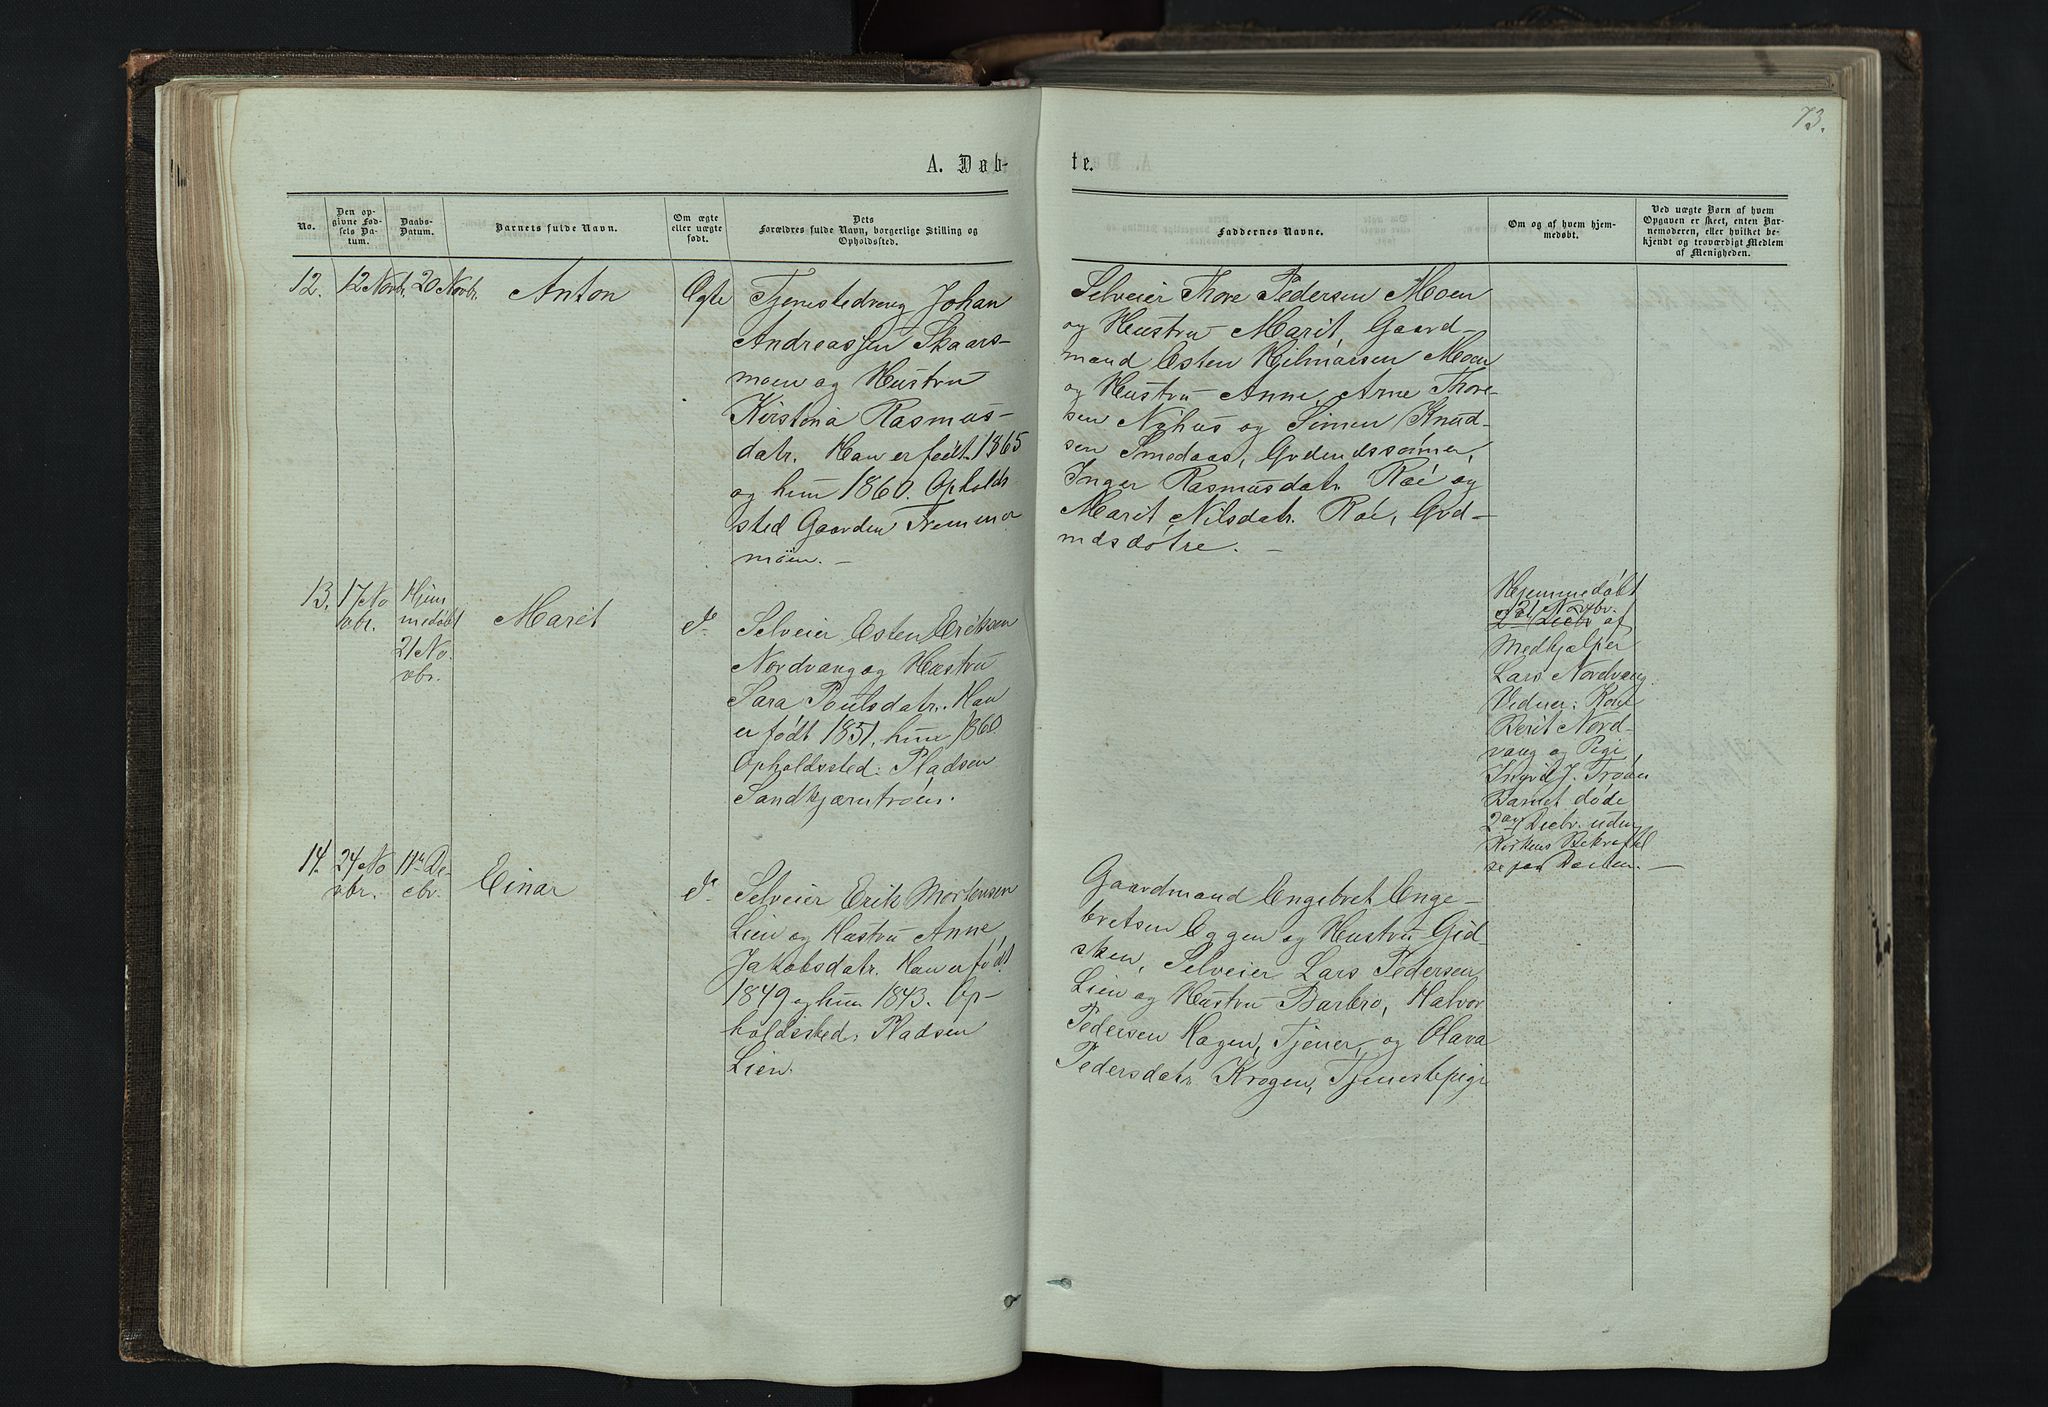 73.
A. Døb-
te.
No.
Den op-
givne Fød-
sels Da-
tum.
Daabs-
Datum.
Barnets fulde Navn.
Om ægte
eller uægte
født.
Dets
Forældres fulde Navn, borgerlige Stilling og
Opholdssted.
Faddernes Navne.
Om og af hvem hjem-
medøbt.
Ved uægte Børn af hvem
Opgaven er skeet, enten Bar-
nemoderen, eller hvilket be-
kjendt og troværdigt Medlem
af Menigheden.
12.
12 Novbr.
20 Novbr.
Anton
Ægte
Tjenestedreng Johan
Andreassen Skaars-
moen og Hustru
Kirstina Rasmus-
datr. Han er født 1865
og hun 1860. Opholds
sted Gaarden
möen. —
Selveier Thore Pedersen Moen
og Hustru Marit, Gaard-
mand Esten Hilmarsen Moen
og Hustru Anne, Arne Thore-
sen Nyhus og Simen Knud-
sen Smedaas, Grdmdssønner,
Inger Rasmusdatr. Röé og
Marit Nilsdatr. Röé, Grd-
mdsdøtre. —
13.
17 No
vbr.
Hjem
medøbt
21 No.
vbr.
Marit
do
Selveier Esten Eriksen
Nordvang og Hustru
Sara Poulsdatr. Han
er født 1851, hun 1860.
Opholdssted: Pladsen
Sandkjærntrøen.
Hjemmedøbt
21 Novbr.
af
Medhjælper
Lars Nordvang.
Vidner: Kone
Berit Nord-
vang og Pige
Ingrid J. Trøen
Barnet døde
2den Decbr. uden
Kirkens Bekræftel
se paa Daaben. —
14.
24 No
vbr.
11te De-
cbr.
Einar
do
Selveier Erik Mortensen
Lien og Hustru Anne
Jakobsdatr. Han er født
1849 og hun 1843. Op-
holdssted: Pladsen
Lien.
Gaardmand Engebret Enge-
bretsen Eggen og Hustru Gid-
sken, Selveier Lars Pedersen
Lien og Hustru Barbro, Halvor
Pedersen Hagen, Tjener, og Olava
Pedersdatr. Krogen, Tjenestepige